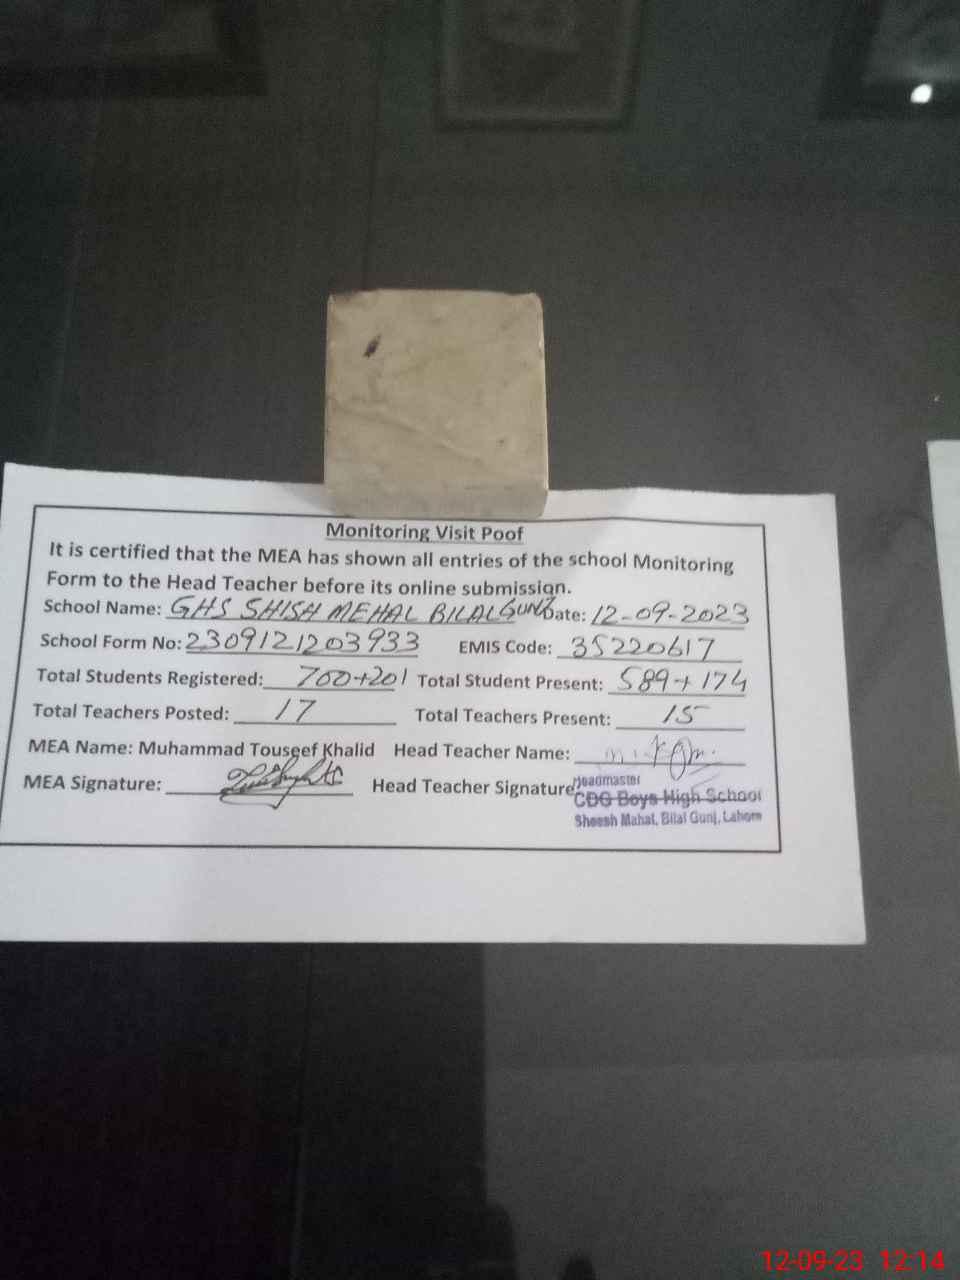 Monitoring Visit Poof
It is certified that the MEA has shown all entries of the school Monitoring
Form to the Head Teacher before its online submission.
School Name: GHS SHISH MEHAL BILAL GUNJ Date: 12-09-2023
School Form No: 2309121203933 EMIS Code: 35220617
Total Students Registered: 700+201 Total Student Present: 589+174
Total Teachers Posted: 17 Total Teachers Present: 15
MEA Name: Muhammad Touseef Khalid Head Teacher Name:
MEA Signature: Head Teacher Signature
Headmaster
CDG Boys High School
Sheesh Mahal, Bilal Gunj, Lahore
12-09-23 12:14